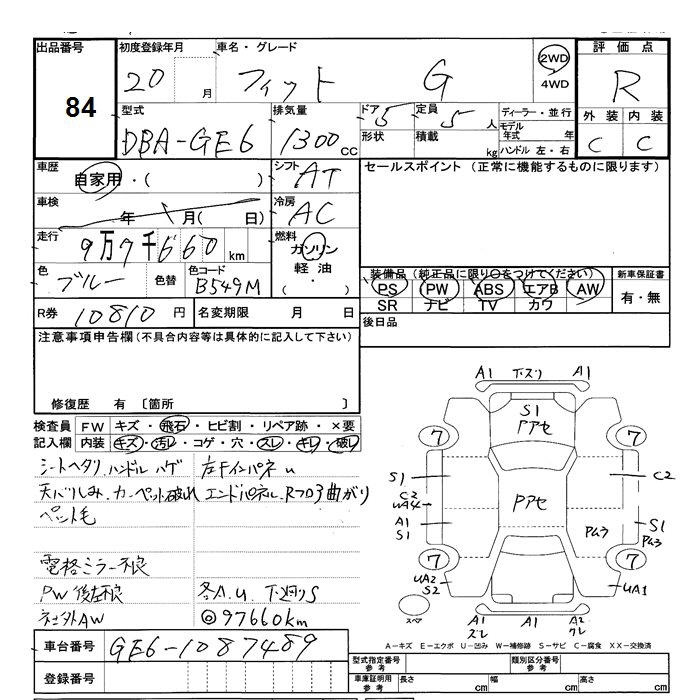 出品番号 84
初度登録年月 20 月
車名・グレード フィット G
2WD
4WD
評価点 R
外装 内装
C C
型式 DBA-GE6
排気量 1300 cc
ドア 5 形状
定員 5 人
積載 kg
ディーラー・並行
モデル年式 年
ハンドル 左・右
車歴 自家用・( )
シフト AT
車検 年 月( 日)
冷房 AC
走行 9万7千660 km
燃料 ガソリン
軽油
( ・ )
色 ブルー 色替
色コード B549M
R券 10810 円
名変期限 月 日
セールスポイント (正常に機能するものに限ります)
装備品 (純正品に限り○をつけてください)
PS PW ABS エアB AW
SR ナビ TV カワ
新車保証書
有・無
後日品
注意事項申告欄(不具合内容等は具体的に記入して下さい)
修復歴 有 〔箇所 〕
検査員記入欄
FW キズ・飛石・ヒビ割・リペア跡・×要
内装 キズ・汚レ・コゲ・穴・スレ・キレ・破レ
シートヘタリ、ハンドルハゲ
天バリしみ、カーペット破れ
ペット毛
電格ミラー不良
PW後左不良
社外AW
左Fインパネu
エンドパネル、Rフロア曲がり
各A.U. 下廻りS
◎97660km
車台番号 GE6-1087489
登録番号
A1 下スリ A1
S1
Pアセ
7 7
S1
C2
UA4
A1
S1
Pアセ
C2
Pムラ
S1
Pムラ
7 7
UA2
S2
UA1
スペア
A1
ズレ
A1
A2
クレ
A-キズ E-エクボ U-凹み W-補修跡 S-サビ C-腐食 XX-交換済
型式指定番号 参考
類別区分番号 参考
車庫証明用 参考
長さ cm 幅 cm 高さ cm